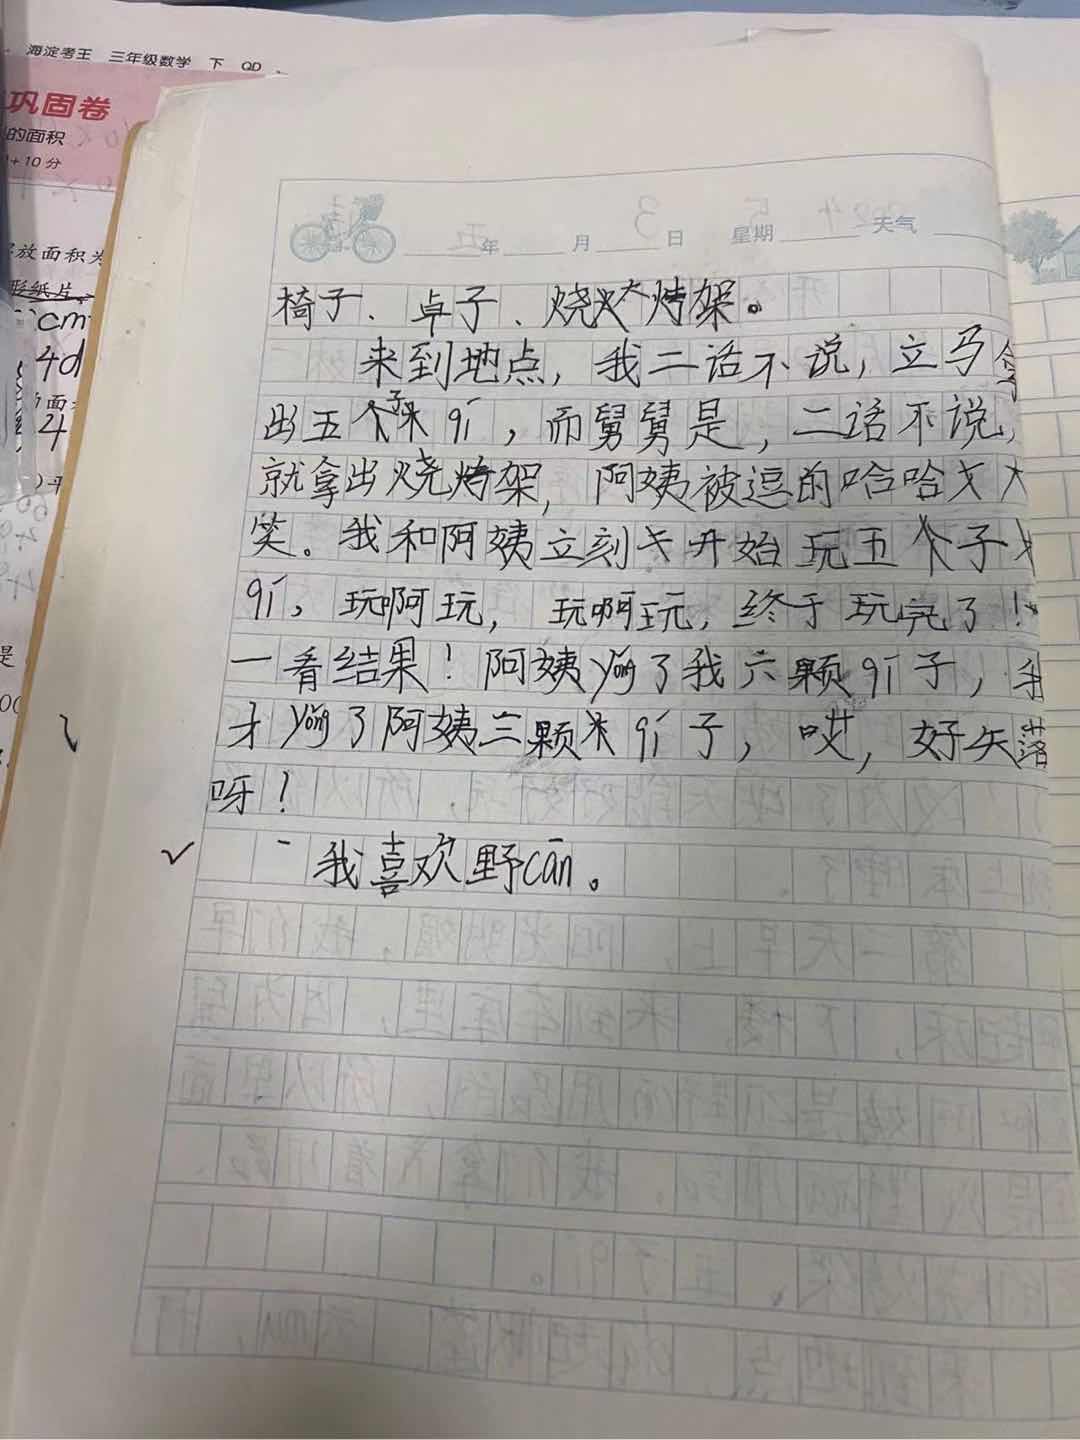 海淀考王 三年级数学 下 QD
巩固卷
的面积
+10分
放面积为
形纸片
cm
4d
面
4
年 月 日 星期 天气
椅子、卓子、烧烤架。
来到地点，我二话不说，立马拿
出五个子 qí，而舅舅是，二话不说，
就拿出烧烤架，阿姨被逗的哈哈大
笑。我和阿姨立刻开始玩五个子
qí，玩啊玩，玩啊玩，终于玩完了！
一看结果！阿姨yíng了我六颗qí子，我
才yíng了阿姨三颗qí子，哎，好失落
呀！
我喜欢野cān。